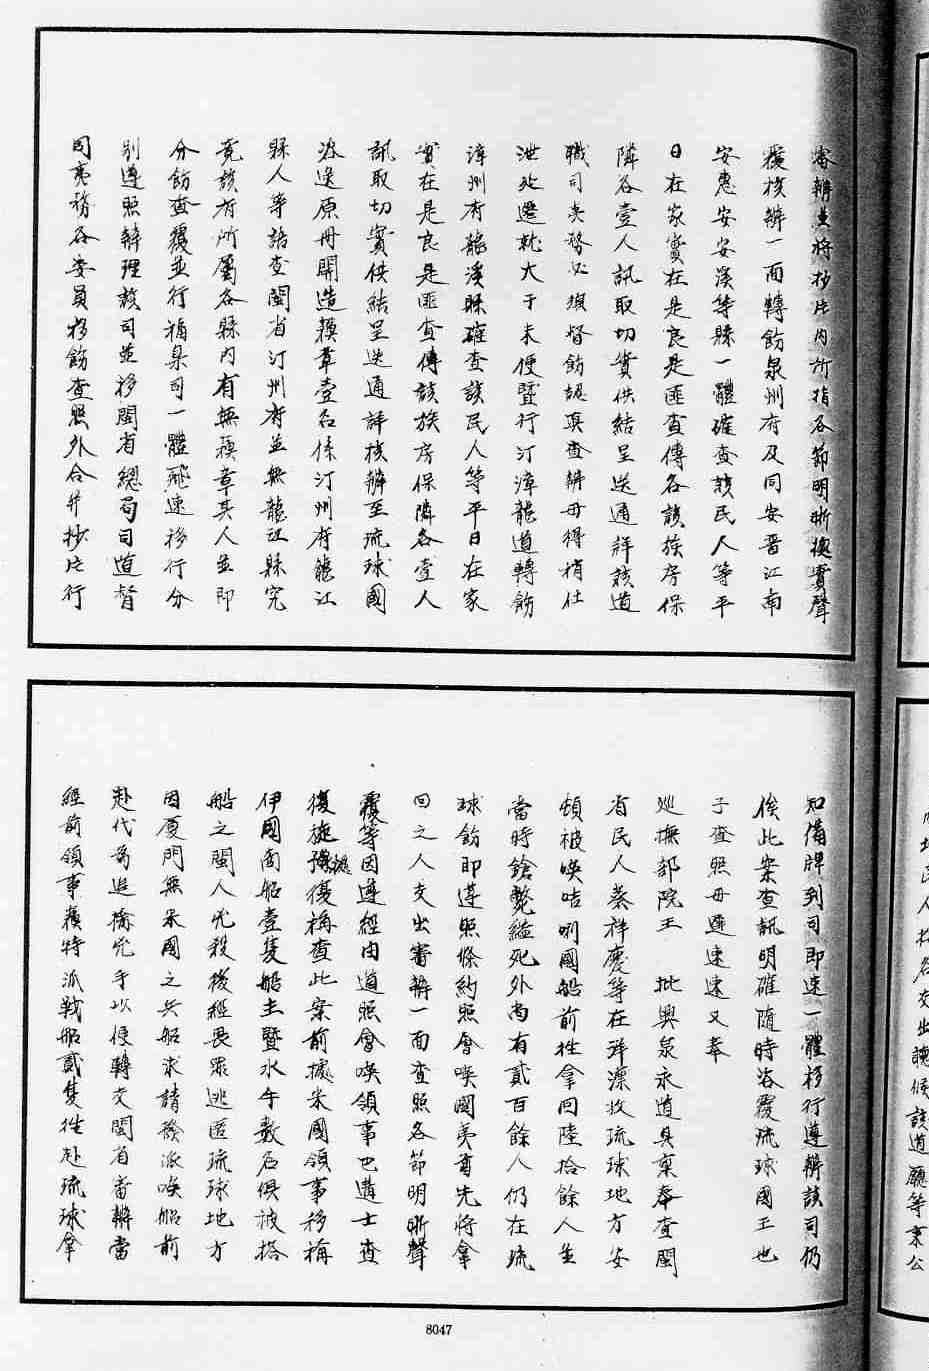 審辦並將抄片內所指各節明晰據實聲
覆核辦一面轉飭泉州府及同安晋江南
安惠安安溪等縣一體確查該民人等平
日在家實在是良是匪查傳各該族房保
隣各壹人訊取切實供結呈送通詳該道
職司夷務必須督飭認真查辦毋得稍任
泄延遷就大于未便暨行汀漳龍道轉飭
漳州府龍溪縣確查該民人等平日在家
實在是良是匪查傳該族房保隣各壹人
訊取切實供結呈送通詳核辦至琉球國
咨送原冊開造蘓韋壹名係汀州府龍江
縣人等語查閩省汀州府並無龍江縣究
竟該府所屬各縣內有無蘓韋其人並即
分飭查覆並行福臬司一體飛速移行分
別遵照辦理該司並移閩省總局司道督
同夷務各委員移飭查照外合并抄片行
知備牌到司即速一體移行遵辦該司仍
俟此案查訊明確隨時咨覆琉球國王也
子查照毋遲速速速又奉
巡撫部院王 批興泉永道具稟奉查閩
省民人蔡祥慶等在洋漂收琉球地方安
頓被㗆咭唎國船前往拿回陸拾餘人並
當時鎗斃縊死外尚有貳百餘人仍在琉
球飭即遵照條約照會㗆國夷酋先將拿
回之人交出審辦一面查照各節明晰聲
覆等因遵經由道照會㗆領事巴遘士查
復旋據復稱查此案前據米國領事移稱
伊國商船壹隻船主暨水手數名俱被搭
船之閩人兇殺後經畏罪逃匿琉球地方
因厦門無米國之兵船求請發派㗆船前
赴代為追擒兇手以便轉交閩省審辦當
經前領事蘓特派戰船貳隻往赴琉球拿
8047